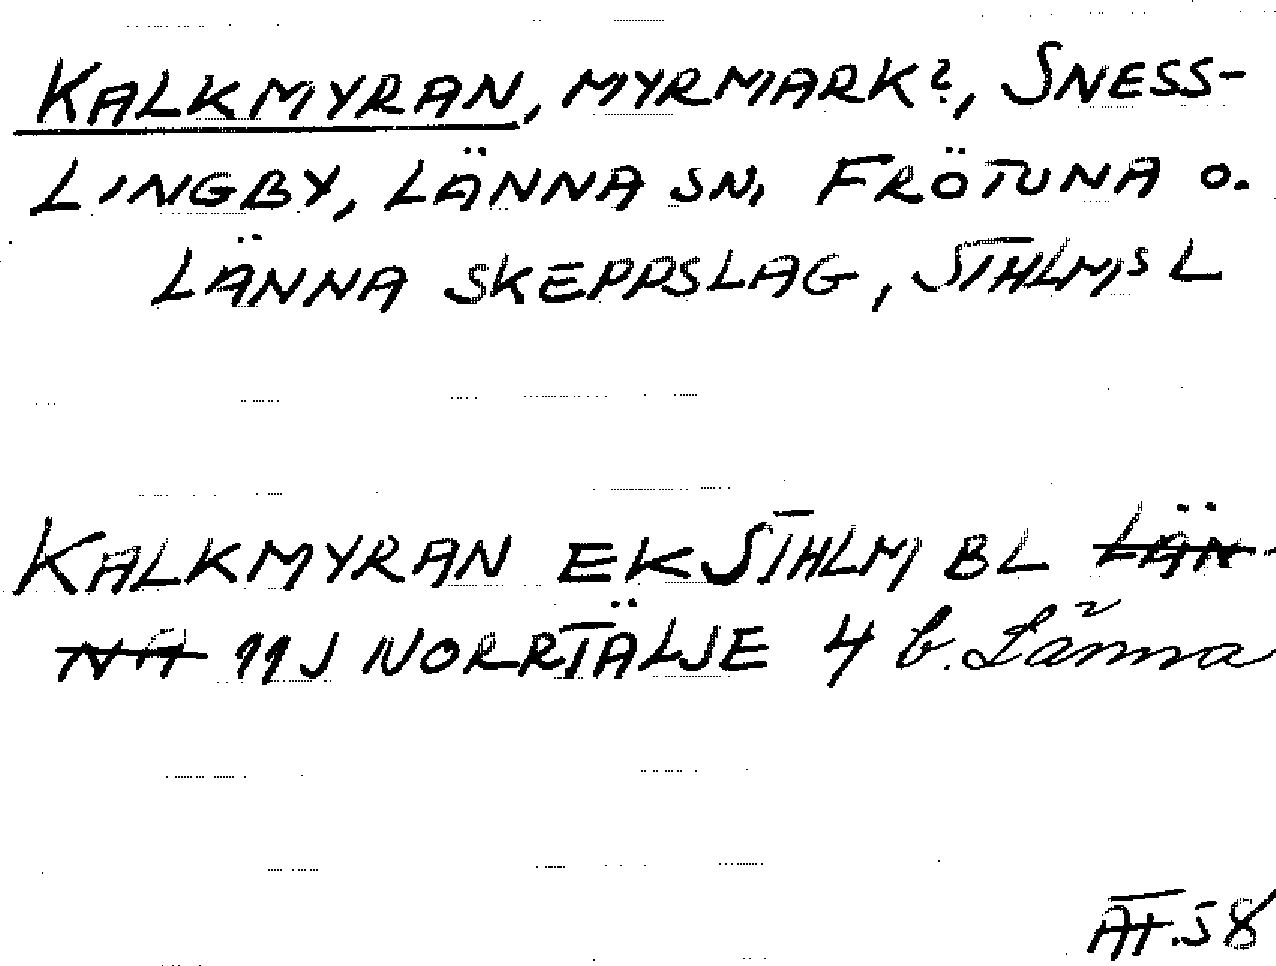 KALKMYRAN, MYRMARK?, SNESS-
LINGBY, LÄNNA SN, FRÖTUNA O.
LÄNNA SKEPPSLAG, STHLMS L
KALKMYRAN EK STHLM BL LÄN-
NA 11J NORRTÄLJE 4 b. Länna
AT.58